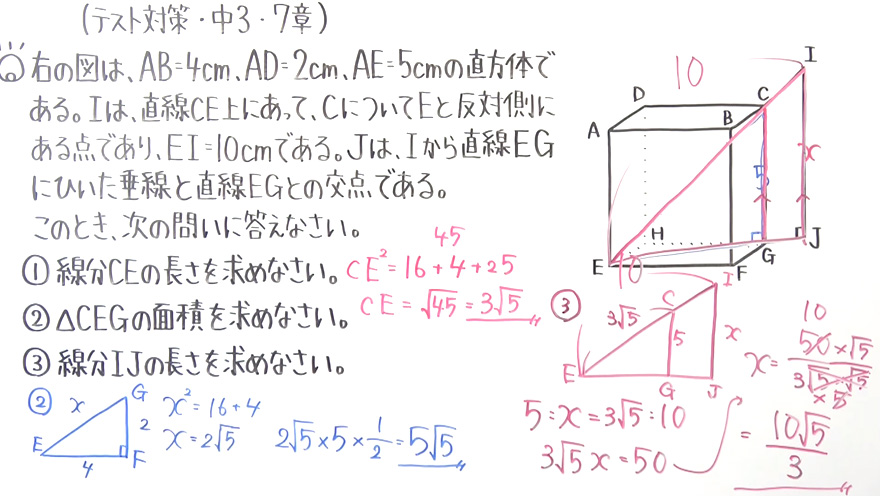 (テスト対策・中3・7章)
右の図は、AB=4cm、AD=2cm、AE=5cmの直方体で
ある。Iは、直線CE上にあって、CについてEと反対側に
ある点であり、EI=10cmである。Jは、Iから直線EG
にひいた垂線と直線EGとの交点である。
このとき、次の問いに答えなさい。
① 線分CEの長さを求めなさい。
② △CEGの面積を求めなさい。
③ 線分IJの長さを求めなさい。
45
CE²=16+4+25
CE=√45=3√5
② x G 2 E 4 F
x²=16+4
x=2√5
2√5×5×1/2=5√5
10 I
D C
A B
5 x
H J
E 10 F G
③ 3√5 C I 5 x
E G J
5:x=3√5:10
3√5x=50
10
x=50×√5/3√5×√5
×5
=10√5/3